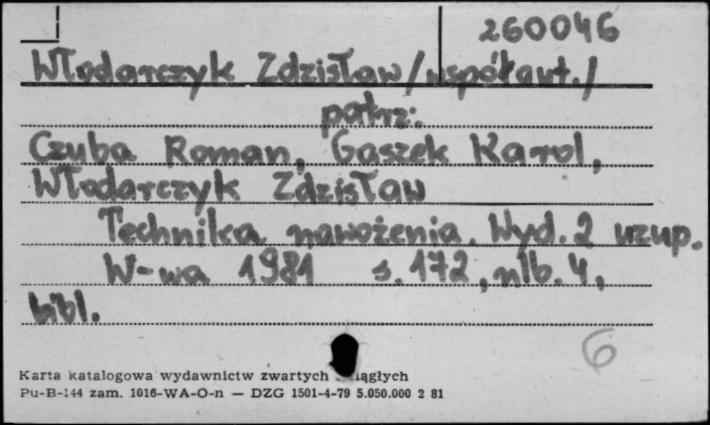 260046
Włodarczyk Zdzisław /współaut./
patrz:
Czuba Roman, Gaszek Karol,
Włodarczyk Zdzisław
Technika nawożenia. Wyd. 2 uzup.
W-wa 1981 s. 172, nlb. 4,
bibl.
6
Karta katalogowa wydawnictw zwartych
Pu-B-144 zam. 1016-WA-O-n — DZG 1501-4-79 5.050.000 2 81